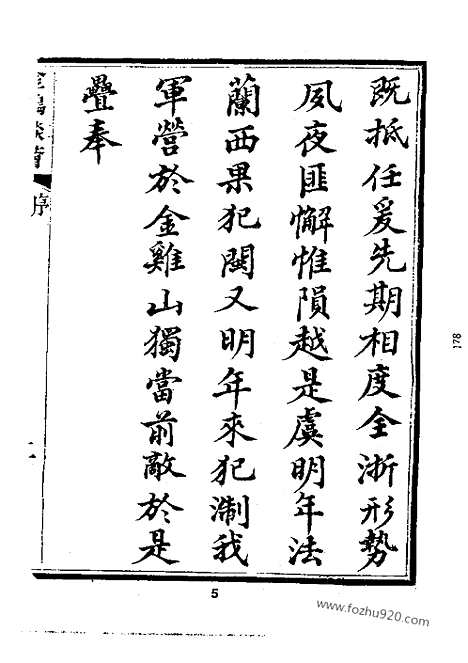 既抵任爰先期相度全浙形勢
夙夜匪懈惟隕越是虞明年法
蘭西果犯閩又明年來犯淛我
軍營於金雞山獨當前敵於是
疊奉
序
二
178
5
www.fozhu920.com